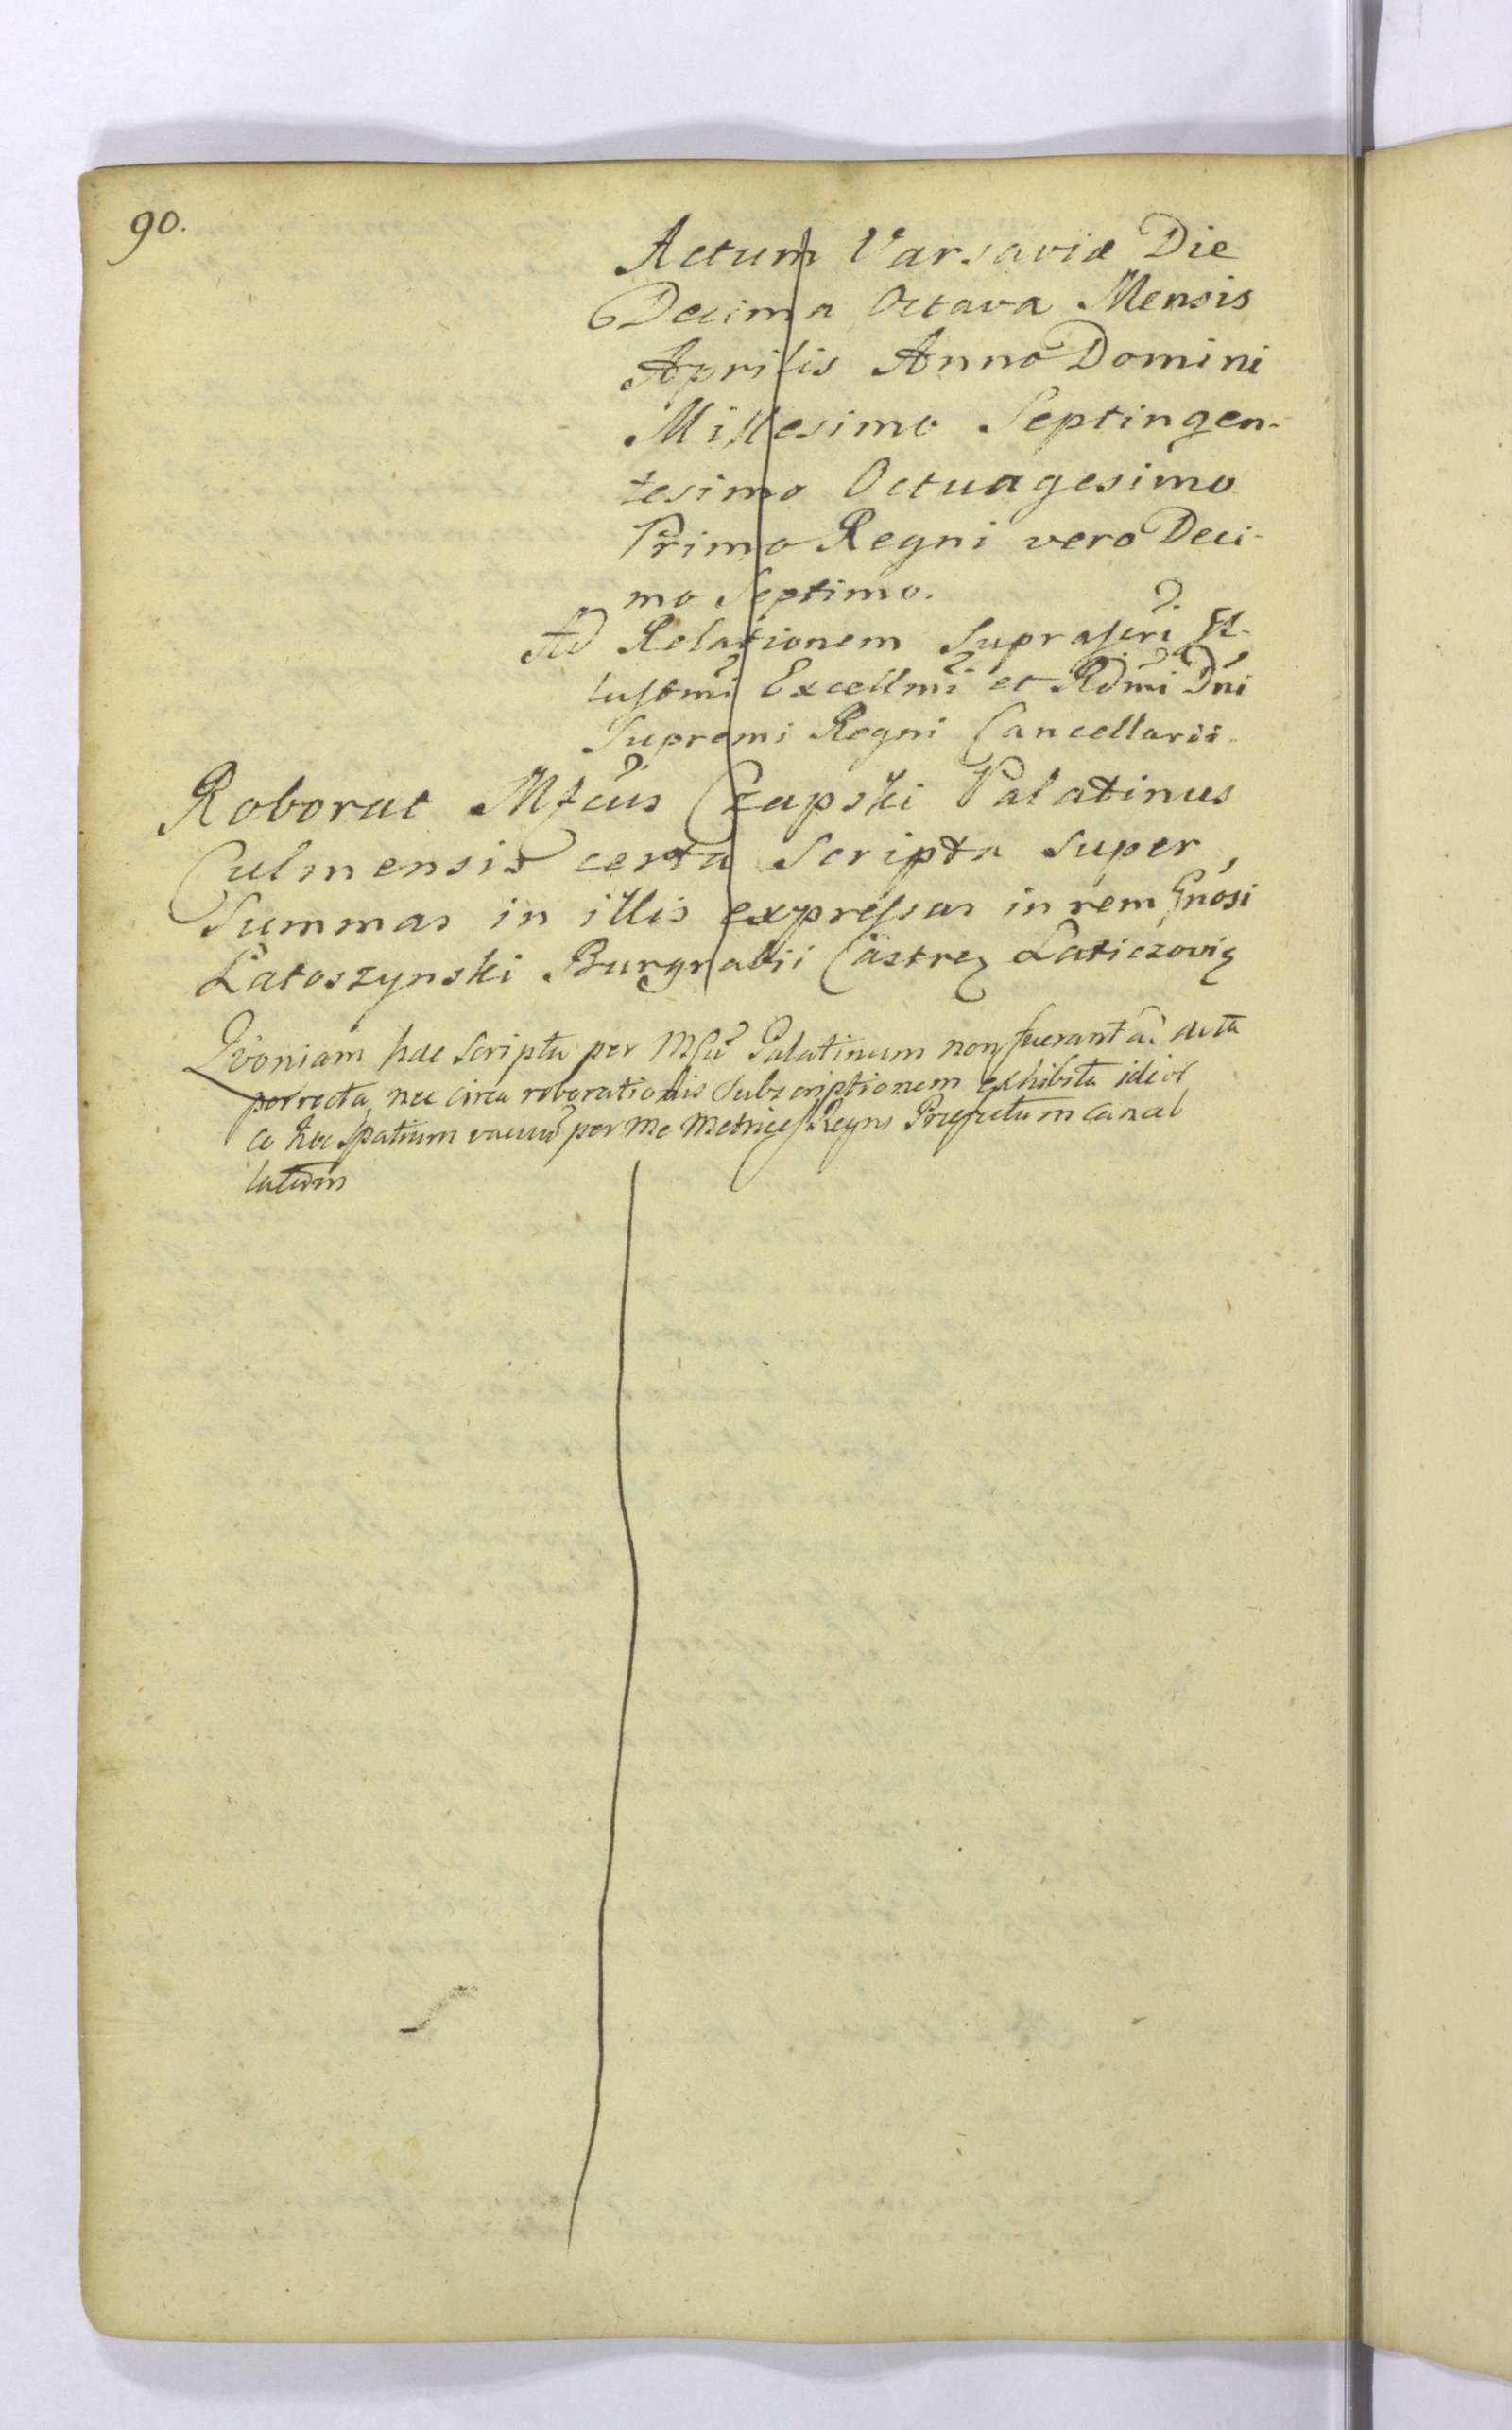 90.
Actum Varsaviæ Die
Decima Octava Mensis
Aprilis Anno Domini
Millesimo Septingen-
tesimo Octuagesimo
Primo Regni vero Deci-
mo Septimo.
Ad Relationem Suprascri Il-
lustmi Excellmi et Rdmi Dni
Supremi Regni Cancellarii
Roborat Mfcus Czapski Palatinus
Culmensis certa Scripta super
Summas in illis expressas in rem Gnosi
Latoszynski Burgrabii Castreę Laticzovię
Qvoniam hae Scripta per Mfcu Palatinum non fuerant ad acta
porrecta, nec circa roborationis Subscriptionem exhibita ideo
hoc Spatium vacuu per me Metrices Regni Prefectum cancel
latum